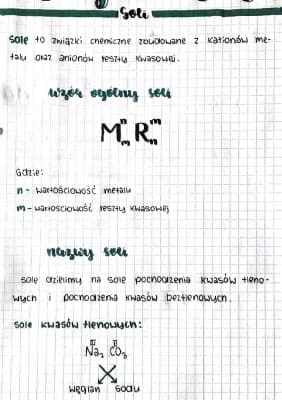 Soli
Sole to związki chemiczne zbudowane z kationów me-
talu oraz anionów reszty kwasowej.
wzór ogólny soli
MᵐₙRᵐₙ
Gdzie:
n - wartościowość metalu
m - wartościowość reszty kwasowej
nazwy soli
sole dzielimy na sole pochodzenia kwasów tleno-
wych i pochodzenia kwasów beztlenowych.
sole kwasów tlenowych:
Na₂ CO₃
węglan sodu